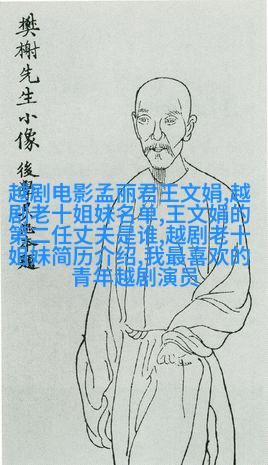 樊榭先生小像
後學
越剧电影孟丽君王文娟,越
剧老十姐妹名单,王文娟的
第二任丈夫是谁,越剧老十
姐妹简历介绍,我最喜欢的
青年越剧演员